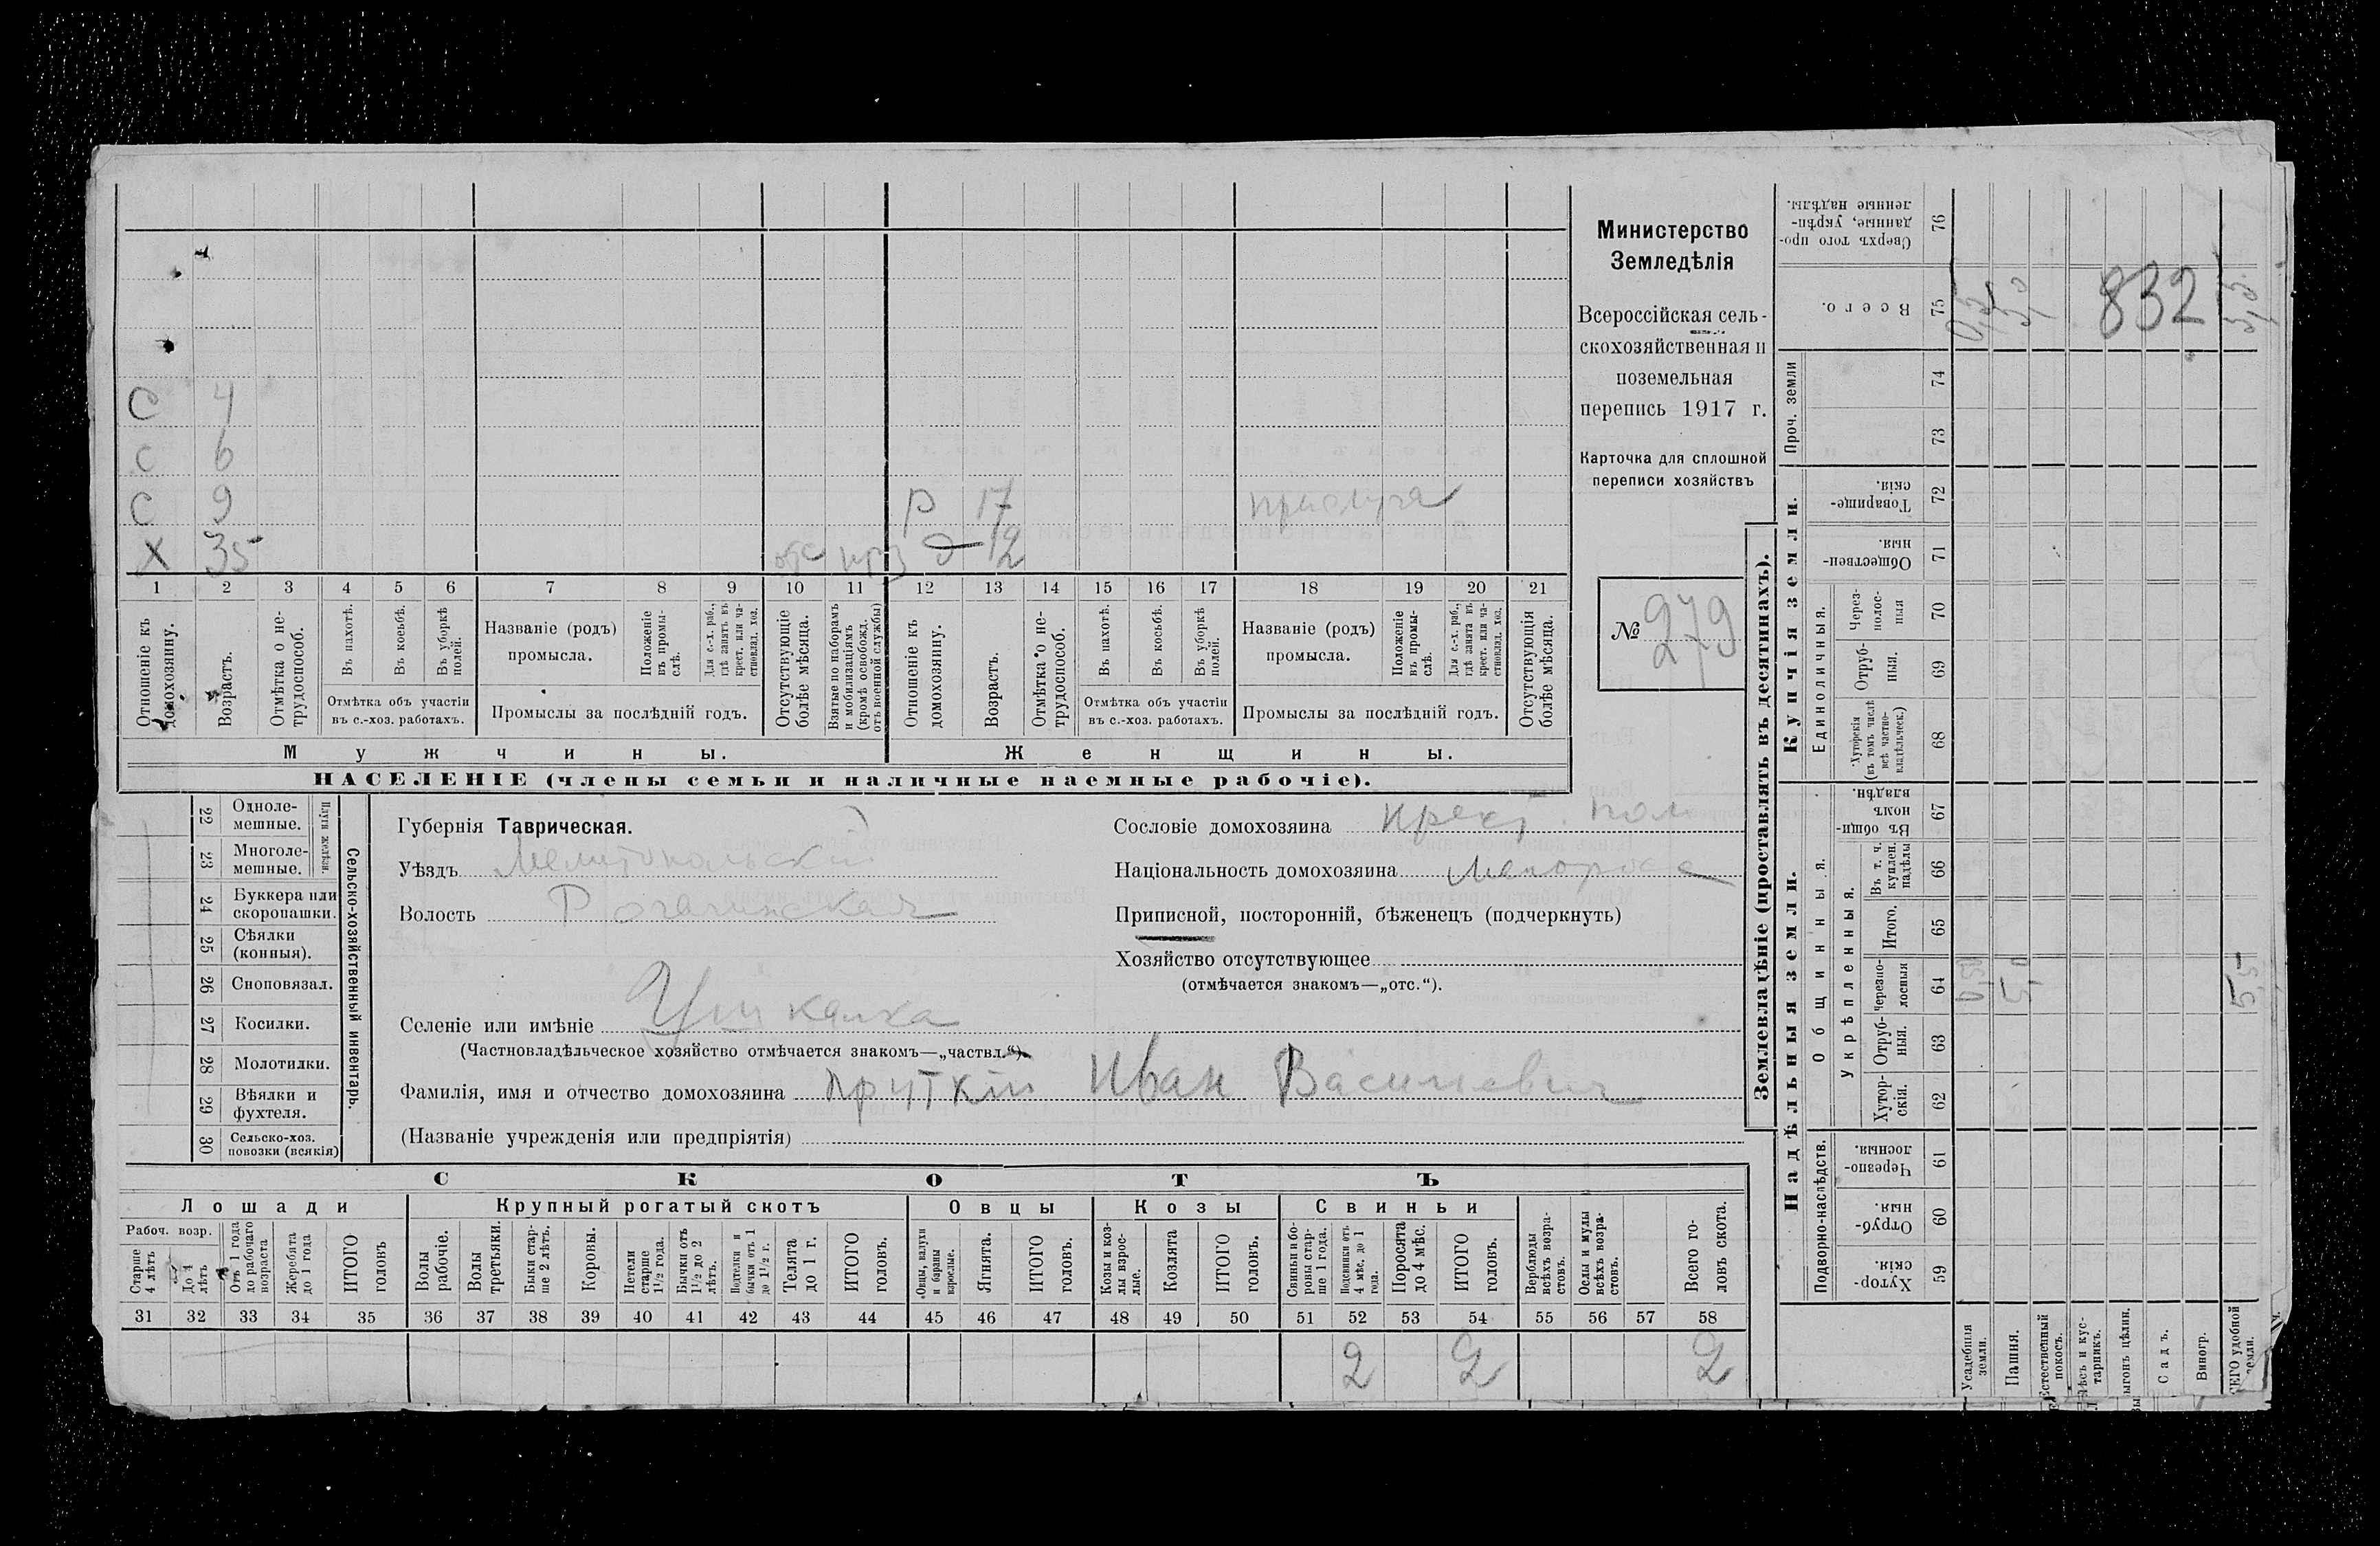 С 4
С 6
С 9 Р 17 прислуга
Х 35 отс Д 12
1 2 3 4 5 6 7 8 9 10 11 12 13 14 15 16 17 18 19 20 21
Отношеніе къ домохозяину.
Возрастъ.
Отмѣтка о не-
трудоспособ.
Въ пахотѣ.
Въ косьбѣ.
Въ уборкѣ
полей.
Отмѣтка объ участіи
въ с.-хоз. работахъ.
Названіе (родъ)
промысла.
Положеніе
въ промы-
слѣ.
Для с.-х. раб.,
гдѣ занятъ въ
крест. или ча-
стновлад. хоз.
Промыслы за послѣдній годъ.
Отсутствующіе
болѣе мѣсяца.
Взятые по наборамъ
и мобилизаціямъ
(кромѣ освобожд.
отъ военной службы)
Отношеніе къ
домохозяину.
Возрастъ.
Отмѣтка о не-
трудоспособ.
Въ пахотѣ.
Въ косьбѣ.
Въ уборкѣ
полей.
Отмѣтка объ участіи
въ с.-хоз. работахъ.
Названіе (родъ)
промысла.
Положеніе
въ промы-
слѣ.
Для с.-х. раб.,
гдѣ занята въ
крест. или ча-
стновлад. хоз.
Промыслы за послѣдній годъ.
Отсутствующія
болѣе мѣсяца.
Мужчины. Женщины.
НАСЕЛЕНІЕ (члены семьи и наличные наемные рабочіе).
Министерство
Земледѣлія
Всероссійская сель-
скохозяйственная и
поземельная
перепись 1917 г.
Карточка для сплошной
переписи хозяйствъ
№ 279
279
22 Одноле-
мешные.
23 Многоле-
мешные.
Плуги желѣзн.
24 Буккера или
скоропашки.
25 Сѣялки
(конныя).
26 Сноповязал.
27 Косилки.
28 Молотилки.
29 Вѣялки и
фухтеля.
30 Сельско-хоз.
повозки (всякія)
Сельско-хозяйственный инвентарь.
Губернія Таврическая.
Уѣздъ Мелитопольскій
Волость Рогачинская
Селеніе или имѣніе Ушкалка
(Частновладѣльческое хозяйство отмѣчается знакомъ—„частвл.“).
Фамилія, имя и отчество домохозяина Пруткій Иван Васильевич
(Названіе учрежденія или предпріятія)
Сословіе домохозяина крест.
Національность домохозяина Малоросс
Приписной, посторонній, бѣженецъ (подчеркнуть)
Хозяйство отсутствующее
(отмѣчается знакомъ—„отс.“).
СКОТЪ
Лошади Крупный рогатый скотъ Овцы Козы Свиньи
Рабоч. возр.
Старше
4 лѣтъ
До 4
лѣтъ
Отъ 1 года
до рабочаго
возраста
Жеребята
до 1 года
ИТОГО
головъ
Волы
рабочіе.
Волы
третьяки.
Быки стар-
ше 2 лѣтъ.
Коровы.
Нетели
старше
1½ года.
Бычки отъ
1½ до 2
лѣтъ.
Подтелки и
бычки отъ 1
до 1½ г.
Телята
до 1 г.
ИТОГО
головъ.
Овцы, валухи
и бараны
взрослые.
Ягнята.
ИТОГО
головъ.
Козы и коз-
лы взрос-
лые.
Козлята
ИТОГО
головъ.
Свиньи и бо-
ровы стар-
ше 1 года.
Подсвинки отъ
4 мѣс. до 1
года.
Поросята
до 4 мѣс.
ИТОГО
головъ.
Верблюды
всѣхъ возра-
стовъ.
Ослы и мулы
всѣхъ возра-
стовъ.
Всего го-
ловъ скота.
31 32 33 34 35 36 37 38 39 40 41 42 43 44 45 46 47 48 49 50 51 52 53 54 55 56 57 58
2 2 2
Землевладѣніе (проставлять въ десятинахъ).
Сверхъ того про-
данные, укрѣп-
ленные надѣлы.
76
Всего.
75 832
Проч. земли
74
73
Купчія земли.
Товарище-
скія.
72
Обществен-
ныя.
71
Единоличныя.
Через-
полос-
ныя
70
Отруб-
ныя.
69
Хуторскія
(въ томъ числѣ
всѣ частно-
владѣльческ.)
68
Надѣльныя земли.
Общинныя.
Въ общи-
номъ
владѣн.
67
Укрѣпленныя.
Въ т. ч.
куплен.
надѣлы
66
Итого.
65
Черезпо-
лосныя
64 5,0 5,5
Отруб-
ныя.
63
Хутор-
скія.
62
Подворно-наслѣдств.
Черезпо-
лосныя.
61
Отруб-
ныя.
60
Хутор-
скія.
59
Усадебныя
земли.
Пашня.
Естественный
покосъ.
Лѣсъ и кус-
тарникъ.
Выгонъ цѣлин.
Садъ.
Виногр.
удобной
земли.